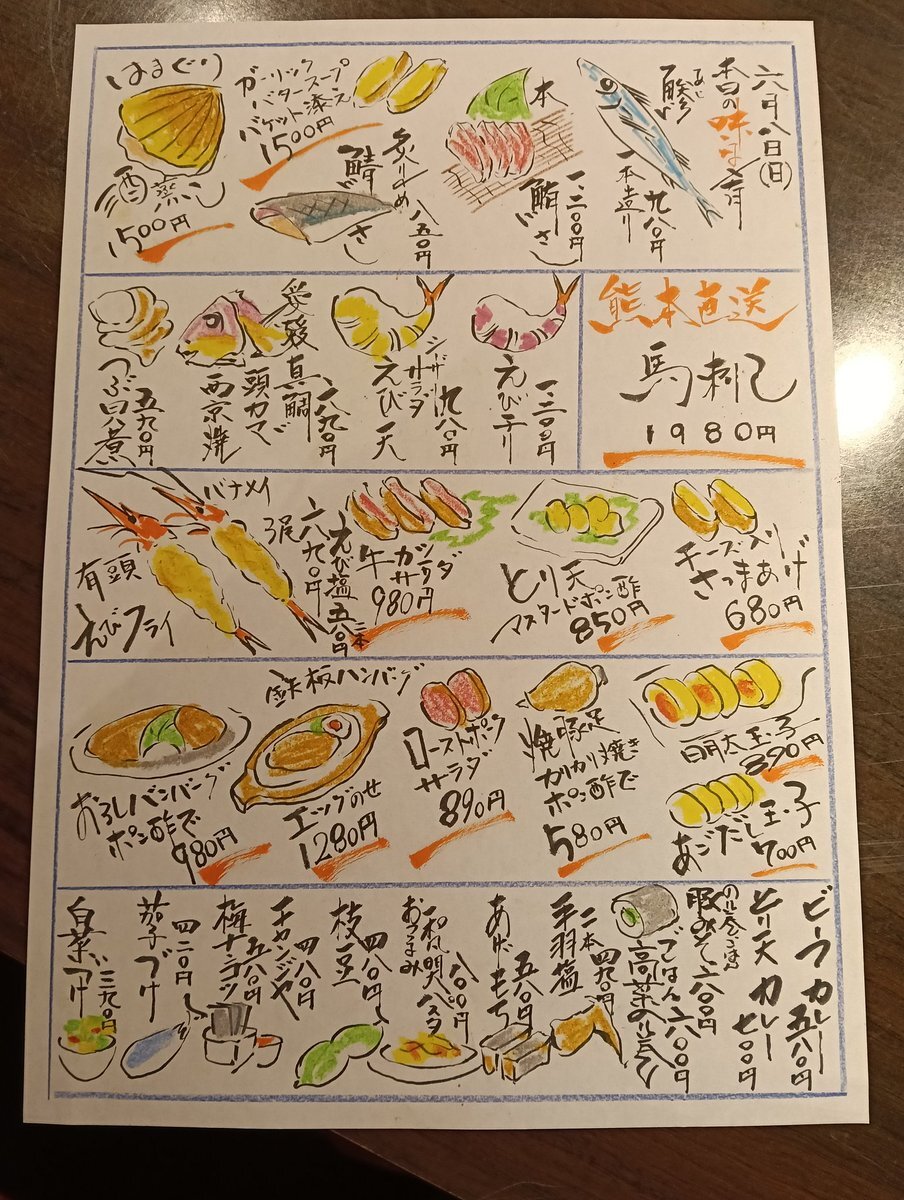 六月八日(日)
本日の味ごよみ
鯵
あじ
一本造り
九八〇円
本
鮪
さし
一二〇〇円
炙り〆め
鯖
さし
八五〇円
ガーリック
バタースープ
バケット添え
1500円
はまぐり
酒蒸し
1500円
熊本直送
馬刺し
1980円
えびチリ
一二〇〇円
シーザーサラダ
えび天
九八〇円
愛媛
真鯛
頭カマ
西京焼
つぶ貝煮
五九〇円
チーズ入り
さつまあげ
680円
とり天
マスタードポン酢
850円
牛カツ
サラダ
980円
バナメイ
有頭
えびフライ
えび塩
五八〇円
二本
明太玉子
890円
あごだし玉子
700円
焼豚足
カリカリ焼き
ポン酢で
580円
ローストポーク
サラダ
890円
鉄板ハンバーグ
エッグのせ
1280円
おろしハンバーグ
ポン酢で
980円
ビーフカレー
五八〇円
とり天カレー
七〇〇円
豚みそ
六〇〇円
ごはん
高菜のり巻
二本
手羽塩
四九〇円
あげもち
五八〇円
和風明太パスタ
おつまみ
八〇〇円
枝豆
四八〇円
チャンジャ
四八〇円
梅ナンコツ
五八〇円
茄子づけ
四二〇円
白菜づけ
三九〇円